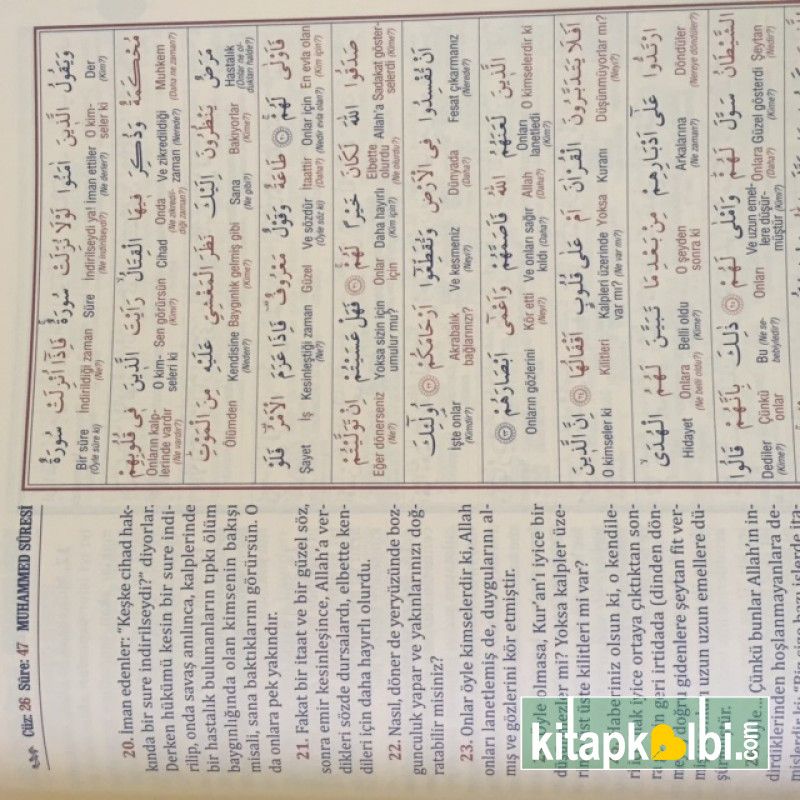 Cüz: 26 Sûre: 47 MUHAMMED SÛRESİ
20. İman edenler: "Keşke cihad hak-
kında bir sure indirilseydi?" diyorlar.
Derken hükümü kesin bir sure indi-
rilip, onda savaş anılınca, kalplerinde
bir hastalık bulunanların tıpkı ölüm
baygınlığında olan kimsenin bakışı
misali, sana baktıklarını görürsün. O
da onlara pek yakındır.
21. Fakat bir itaat ve bir güzel söz,
sonra emir kesinleşince, Allah'a ver-
dikleri sözde dursalardı, elbette ken-
dileri için daha hayırlı olurdu.
22. Nasıl, döner de yeryüzünde boz-
gunculuk yapar ve yakınlarınızı doğ-
ratabilir misiniz?
23. Onlar öyle kimselerdir ki, Allah
onları lanetlemiş de, duygularını al-
mış ve gözlerini kör etmiştir.
olmasa, Kur'an'ı iyice bir
mi? Yoksa kalpler üze-
üste kilitleri mi var?
olsun ki, o kendile-
iyice ortaya çıktıktan son-
geri irtidada (dinden dön-
doğru gidenlere şeytan fit ver-
uzun uzun emellere dü-
Çünkü bunlar Allah'ın in-
dirdiklerinden hoşlanmayanlara de-
وَيَقُولُ الَّذِينَ اٰمَنُوا لَوْلَا نُزِّلَتْ سُورَةٌ فَاِذَٓا اُنْزِلَتْ سُورَةٌ
Der O kim-seler ki İman ettiler İndirilseydi ya! Sûre İndirildiği zaman Bir sûre
(Kim?) (Ne derler?) (Ne indirilseydi?) (Ne?) (Öyle sûre ki)
مُحْكَمَةٌ وَذُكِرَ فِيهَا الْقِتَالُ رَاَيْتَ الَّذِينَ فِي قُلُوبِهِمْ
Muhkem Ve zikredildiği zaman Onda Cihad Sen görürsün O kim-seleri ki Onların kalp-lerinde vardır
(Daha ne zaman?) (Nerede?) (Ne zikredil-diği zaman?) (Kimi?) (Ne vardır?)
مَرَضٌ يَنْظُرُونَ اِلَيْكَ نَظَرَ الْمَغْشِيِّ عَلَيْهِ مِنَ الْمَوْتِ
Hastalık Bakıyorlar Sana Baygınlık gelmiş gibi Kendisine Ölümden
(Onlar ne ol-dukları halde?) (Kime?) (Ne gibi?) (Kime?) (Neden?)
فَاَوْلٰى لَهُمْ طَاعَةٌ وَقَوْلٌ مَعْرُوفٌ فَاِذَا عَزَمَ الْاَمْرُ فَلَوْ
En evla olan Onlar için İtaattir Ve sözdür Güzel Kesinleştiği zaman İş Şayet
(Kim için?) (Nedir evla olan?) (Daha?) (Öyle söz ki) (Ne?)
صَدَقُوا اللّٰهَ لَكَانَ خَيْرًا لَهُمْ فَهَلْ عَسَيْتُمْ اِنْ تَوَلَّيْتُمْ
Sadakat göster-selerdi Allah'a Elbette olurdu Daha hayırlı Onlar için Yoksa sizin için umulur mu? Eğer dönerseniz
(Kime?) (Ne olurdu?) (Kim için?) (Ne?)
اَنْ تُفْسِدُوا فِي الْاَرْضِ وَتُقَطِّعُٓوا اَرْحَامَكُمْ اُولٰٓئِكَ
Fesat çıkarmanız Dünyada Ve kesmeniz Akrabalık bağlarınızı? İşte onlar
(Nerede?) (Daha?) (Neyi?) (Kimdir?)
الَّذِينَ لَعَنَهُمُ اللّٰهُ فَاَصَمَّهُمْ وَاَعْمٰٓى اَبْصَارَهُمْ
O kimselerdir ki Onları lanetledi Allah Ve onları sağır kıldı Kör etti Onların gözlerini
(Kim?) (Daha?) (Daha?) (Neyi?)
اَفَلَا يَتَدَبَّرُونَ الْقُرْاٰنَ اَمْ عَلٰى قُلُوبٍ اَقْفَالُهَا اِنَّ الَّذِينَ
Düşünmüyorlar mı? Kuranı Yoksa Kalpleri üzerinde var mı? Kilitleri O kimseler ki
(Neyi?) (Ne var mı?)
ارْتَدُّوا عَلٰٓى اَدْبَارِهِمْ مِنْ بَعْدِ مَا تَبَيَّنَ لَهُمُ الْهُدَى
Döndüler Arkalarına O şeyden sonra ki Belli oldu Onlara Hidayet
(Nereye döndüler?) (Ne zaman?) (Kime?) (Ne belli oldu?)
الشَّيْطَانُ سَوَّلَ لَهُمْ وَاَمْلٰى لَهُمْ ذٰلِكَ بِاَنَّهُمْ قَالُوا
Şeytan Güzel gösterdi Onlara Ve uzun emel-lere düşür-müştür Onları Bu Çünkü onlar Dediler
(Nedir?) (Kime?) (Daha?) (Kimi?) (Ne se-bebiyledir?) (Kime?)
kitapkalbi.com